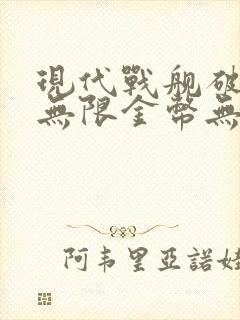 現代戰舰破
無限金幣無
阿韦里亞諾娃